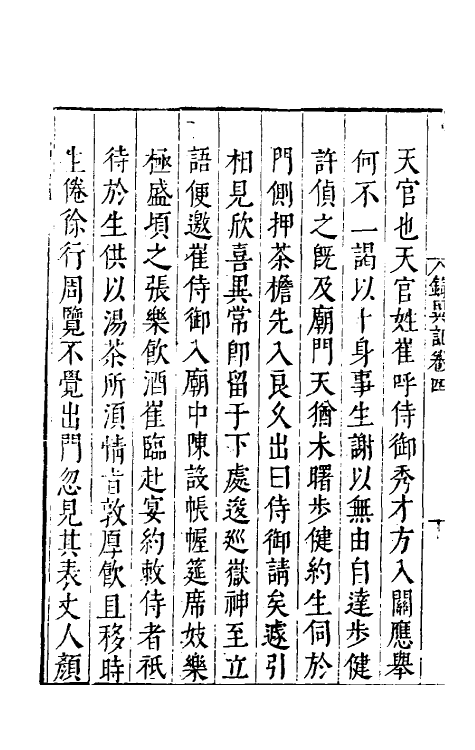 天官也天官姓崔呼侍御秀才方入關應舉
何不一謁以卜身事生謝以無由自達步健
許偵之旣及廟門天猶未曙步健約生伺於
門側押茶檐先入良久出曰侍御請矣遽引
相見欣喜異常卽留于下處逡巡嶽神至立
語便邀崔侍御入廟中陳設帳幄筵席妓樂
極盛頃之張樂飮酒崔臨赴宴約敕侍者祇
待於生供以湯茶所湏情旨敦厚飮且移時
生倦徐行周覽不覺出門忽見其表丈人顏
錄異記卷四